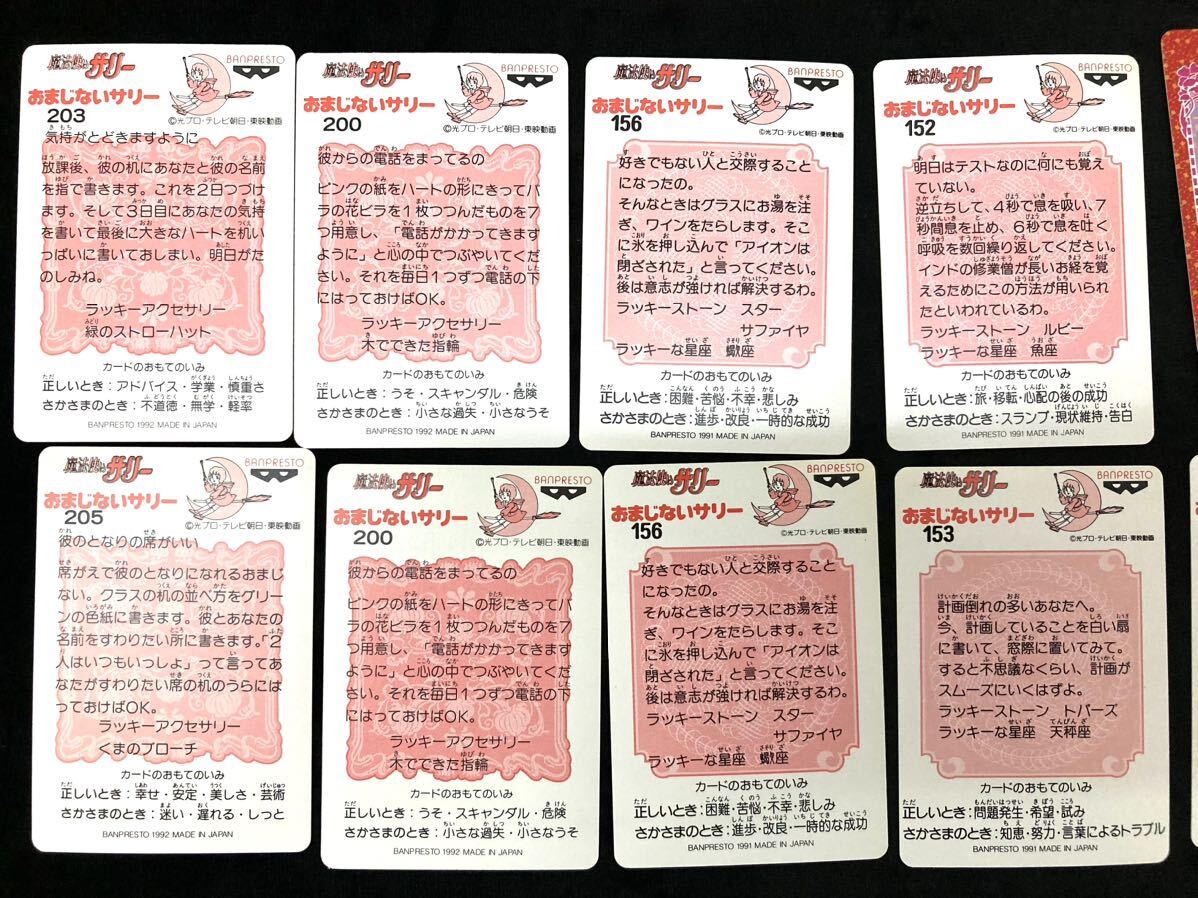 魔法使いサリー
BANPRESTO
おまじないサリー
203
©光プロ・テレビ朝日・東映動画
気持がとどきますように
放課後、彼の机にあなたと彼の名前
を指で書きます。これを2日つづけ
ます。そして3日目にあなたの気持
を書いて最後に大きなハートを机い
っぱいに書いておしまい。明日がた
のしみね。
ラッキーアクセサリー
緑のストローハット
カードのおもてのいみ
正しいとき：アドバイス・学業・慎重さ
さかさまのとき：不道徳・無学・軽率
BANPRESTO 1992 MADE IN JAPAN
魔法使いサリー
BANPRESTO
おまじないサリー
200
©光プロ・テレビ朝日・東映動画
彼からの電話をまってるの
ピンクの紙をハートの形にきってバ
ラの花ビラを1枚つつんだものを7
つ用意し、「電話がかかってきます
ように」と心の中でつぶやいてくだ
さい。それを毎日1つずつ電話の下
にはっておけばOK。
ラッキーアクセサリー
木でできた指輪
カードのおもてのいみ
正しいとき：うそ・スキャンダル・危険
さかさまのとき：小さな過失・小さなうそ
BANPRESTO 1992 MADE IN JAPAN
魔法使いサリー
BANPRESTO
おまじないサリー
156
©光プロ・テレビ朝日・東映動画
好きでもない人と交際すること
になったの。
そんなときはグラスにお湯を注
ぎ、ワインをたらします。そこ
に氷を押し込んで「アイオンは
閉ざされた」と言ってください。
後は意志が強ければ解決するわ。
ラッキーストーン スター
サファイヤ
ラッキーな星座 蠍座
カードのおもてのいみ
正しいとき：困難・苦悩・不幸・悲しみ
さかさまのとき：進歩・改良・一時的な成功
BANPRESTO 1991 MADE IN JAPAN
魔法使いサリー
BANPRESTO
おまじないサリー
152
©光プロ・テレビ朝日・東映動画
明日はテストなのに何にも覚え
ていない。
逆立ちして、4秒で息を吸い、7
秒間息を止め、6秒で息を吐く
呼吸を数回繰り返してください。
インドの修業僧が長いお経を覚
えるためにこの方法が用いられ
たといわれているわ。
ラッキーストーン ルビー
ラッキーな星座 魚座
カードのおもてのいみ
正しいとき：旅・移転・心配の後の成功
さかさまのとき：スランプ・現状維持・告白
BANPRESTO 1991 MADE IN JAPAN
魔法使いサリー
BANPRESTO
おまじないサリー
205
©光プロ・テレビ朝日・東映動画
彼のとなりの席がいい
席がえで彼のとなりになれるおまじ
ない。クラスの机の並べ方をグリー
ンの色紙に書きます。彼とあなたの
名前をすわりたい所に書きます。「2
人はいつもいっしょ」って言ってあ
なたがすわりたい席の机のうらには
っておけばOK。
ラッキーアクセサリー
くまのブローチ
カードのおもてのいみ
正しいとき：幸せ・安定・美しさ・芸術
さかさまのとき：迷い・遅れる・しっと
BANPRESTO 1992 MADE IN JAPAN
魔法使いサリー
BANPRESTO
おまじないサリー
200
©光プロ・テレビ朝日・東映動画
彼からの電話をまってるの
ピンクの紙をハートの形にきってバ
ラの花ビラを1枚つつんだものを7
つ用意し、「電話がかかってきます
ように」と心の中でつぶやいてくだ
さい。それを毎日1つずつ電話の下
にはっておけばOK。
ラッキーアクセサリー
木でできた指輪
カードのおもてのいみ
正しいとき：うそ・スキャンダル・危険
さかさまのとき：小さな過失・小さなうそ
BANPRESTO 1992 MADE IN JAPAN
魔法使いサリー
BANPRESTO
おまじないサリー
156
©光プロ・テレビ朝日・東映動画
好きでもない人と交際すること
になったの。
そんなときはグラスにお湯を注
ぎ、ワインをたらします。そこ
に氷を押し込んで「アイオンは
閉ざされた」と言ってください。
後は意志が強ければ解決するわ。
ラッキーストーン スター
サファイヤ
ラッキーな星座 蠍座
カードのおもてのいみ
正しいとき：困難・苦悩・不幸・悲しみ
さかさまのとき：進歩・改良・一時的な成功
BANPRESTO 1991 MADE IN JAPAN
魔法使いサリー
BANPRESTO
おまじないサリー
153
©光プロ・テレビ朝日・東映動画
計画倒れの多いあなたへ。
今、計画していることを白い扇
に書いて、窓際に置いてみて。
すると不思議なくらい、計画が
スムーズにいくはずよ。
ラッキーストーン トパーズ
ラッキーな星座 天秤座
カードのおもてのいみ
正しいとき：問題発生・希望・試み
さかさまのとき：知恵・努力・言葉によるトラブル
BANPRESTO 1991 MADE IN JAPAN